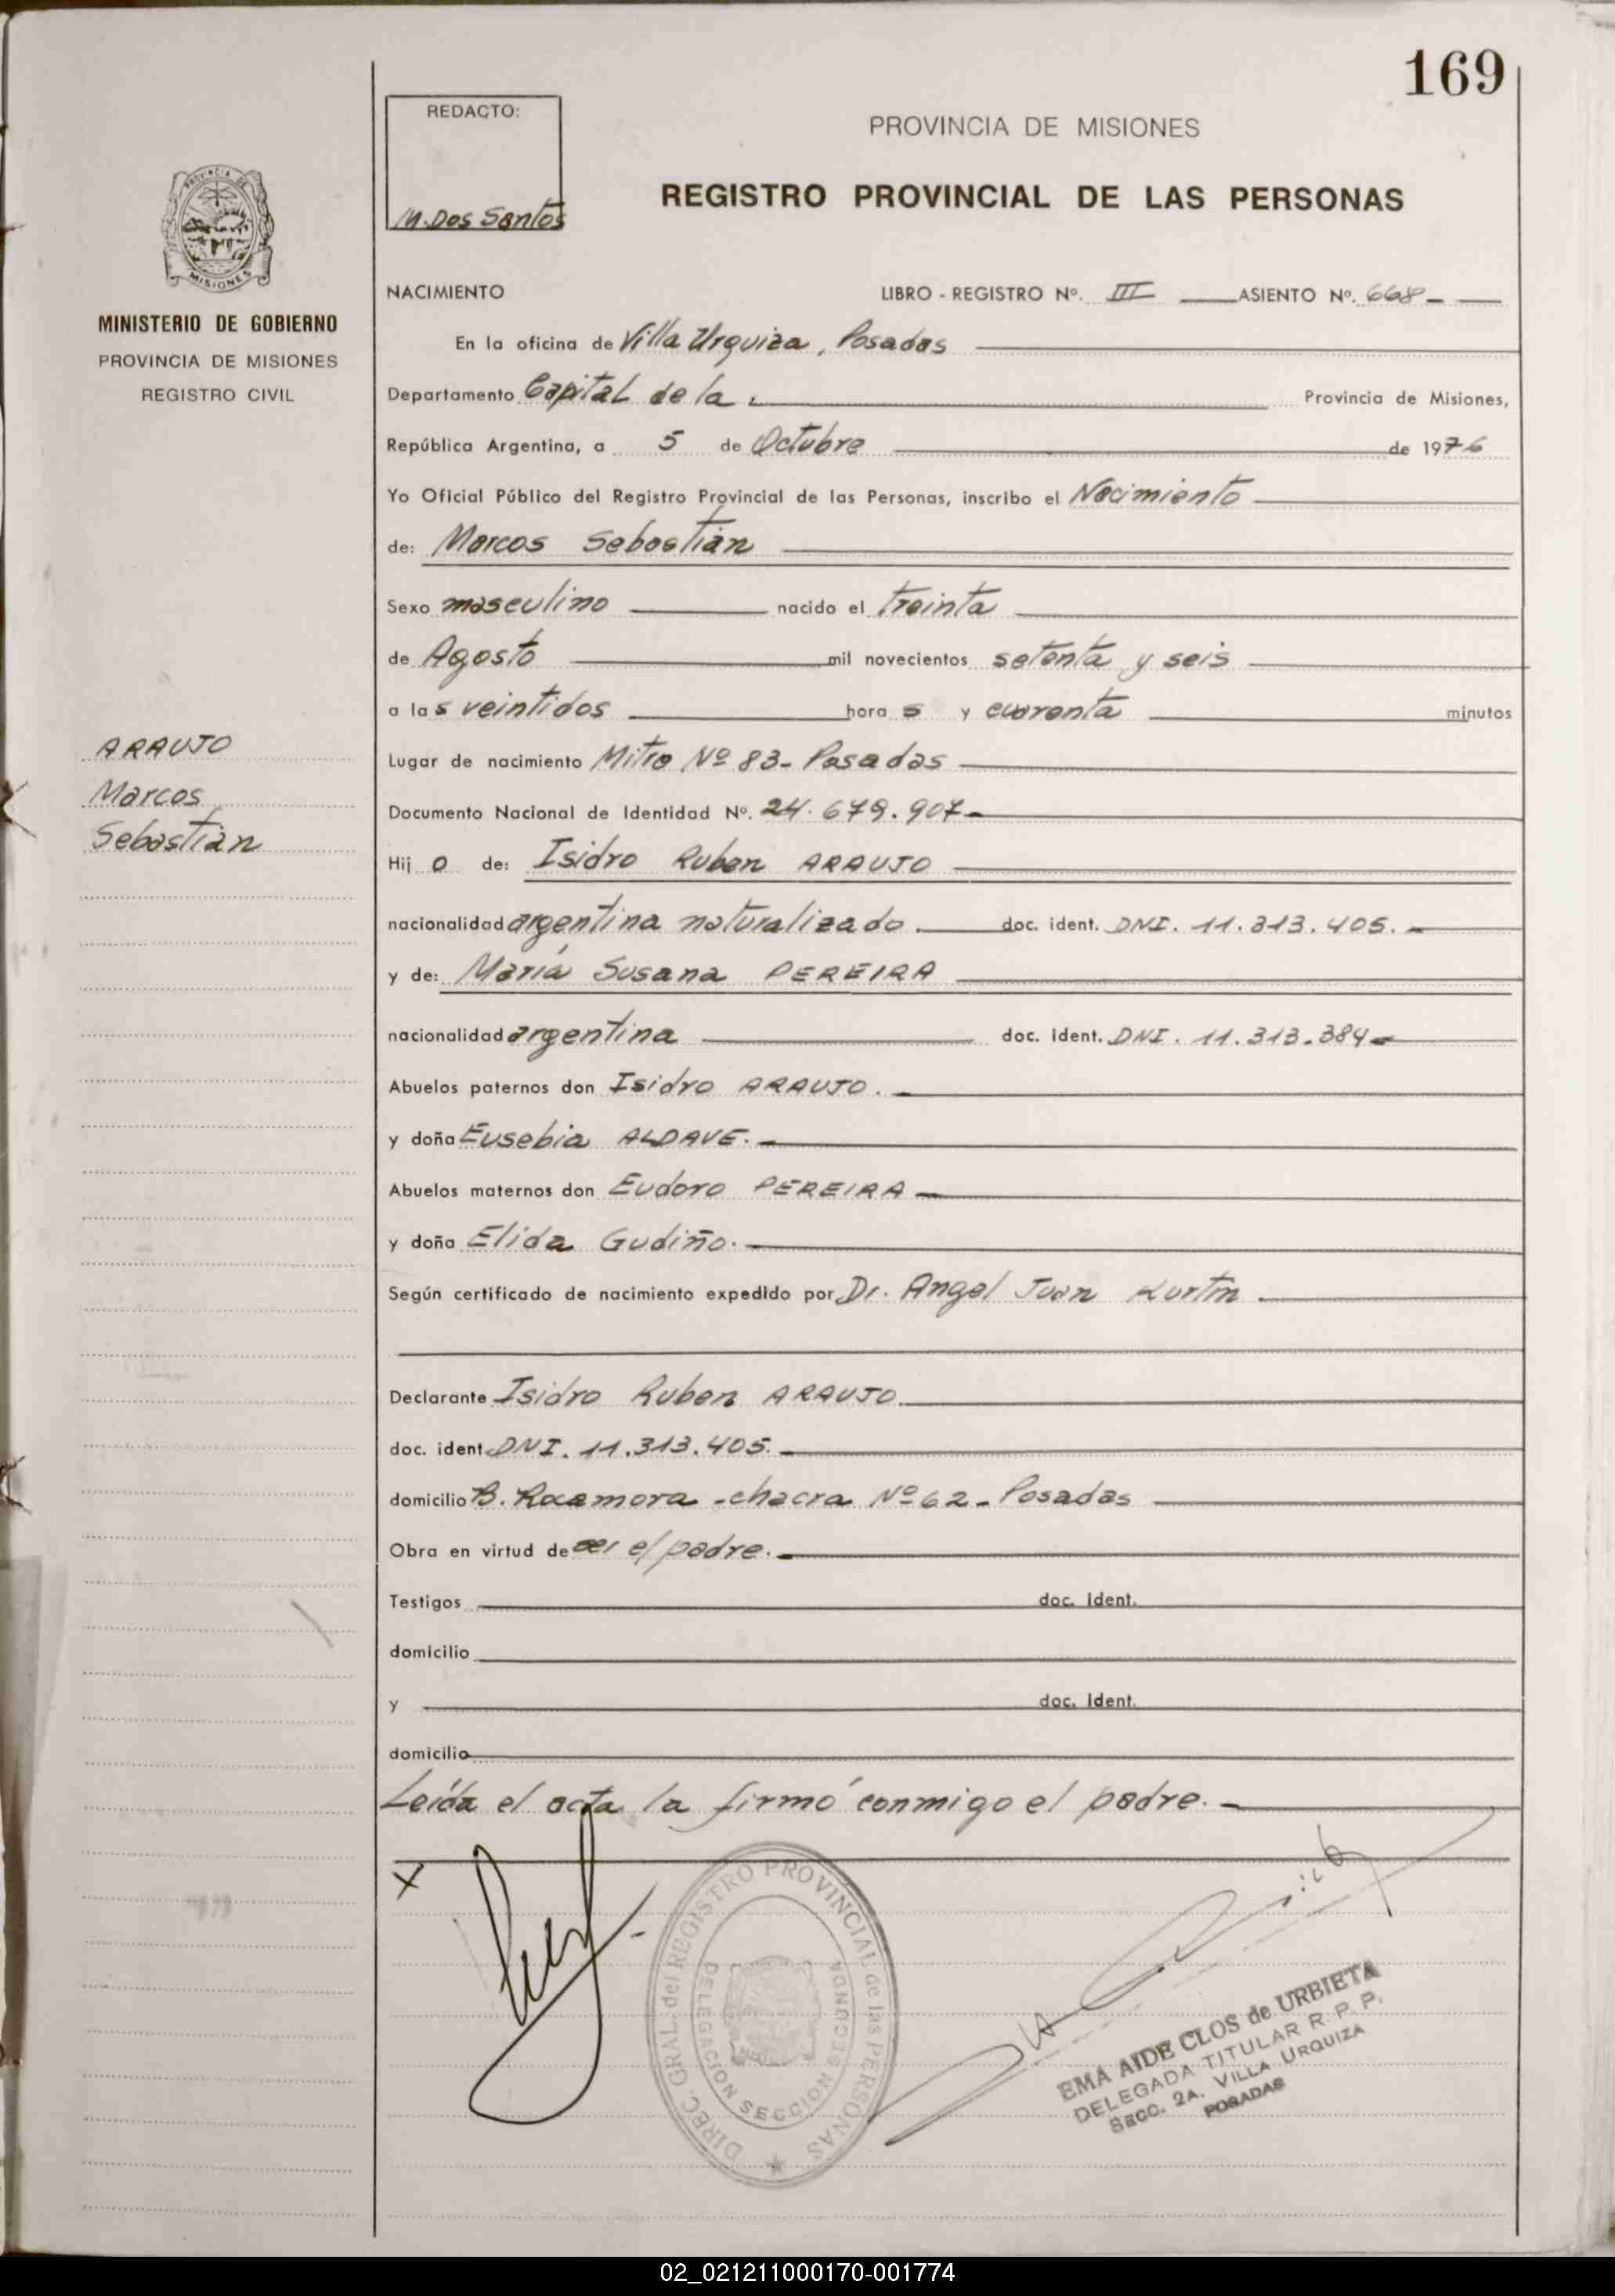 169
REDACTO:
M. Dos Santos
PROVINCIA DE MISIONES
REGISTRO PROVINCIAL DE LAS PERSONAS
PROVINCIA DE
MISIONES
MINISTERIO DE GOBIERNO
PROVINCIA DE MISIONES
REGISTRO CIVIL
NACIMIENTO LIBRO - REGISTRO Nº. III ASIENTO Nº. 668
En la oficina de Villa Urquiza, Posadas
Departamento Capital de la Provincia de Misiones,
República Argentina, a 5 de Octubre de 1976
Yo Oficial Público del Registro Provincial de las Personas, inscribo el Nacimiento
de: Marcos Sebastián
Sexo masculino nacido el treinta
de Agosto mil novecientos setenta y seis
a las veintidos horas y cuarenta minutos
ARAUJO
Marcos
Sebastián
Lugar de nacimiento Mitre Nº 83- Posadas
Documento Nacional de Identidad Nº. 24.679.907-
Hijo de: Isidro Ruben ARAUJO
nacionalidad argentina naturalizado. doc. ident. DNI. 11.313.405.-
y de: María Susana PEREIRA
nacionalidad argentina doc. ident. DNI. 11.313.384-
Abuelos paternos don Isidro ARAUJO.-
y doña Eusebia ALDAVE.-
Abuelos maternos don Eudoro PEREIRA-
y doña Elida Gudiño.-
Según certificado de nacimiento expedido por Dr. Angel Juan
Declarante Isidro Ruben ARAUJO.
doc. ident. DNI. 11.313.405.-
domicilio B. Rocamora - chacra Nº 62- Posadas
Obra en virtud de ser el padre.-
Testigos doc. ident.
domicilio
y doc. ident.
domicilio
Leída el acta la firmó conmigo el padre.-
X
DIREC. GRAL. del REGISTRO PROVINCIAL de las PERSONAS
DELEGACION SECCION SEGUNDA
EMA AIDE CLOS de URBIETA
DELEGADA TITULAR R. P. P.
SECC. 2A. VILLA URQUIZA
POSADAS
02_021211000170-001774